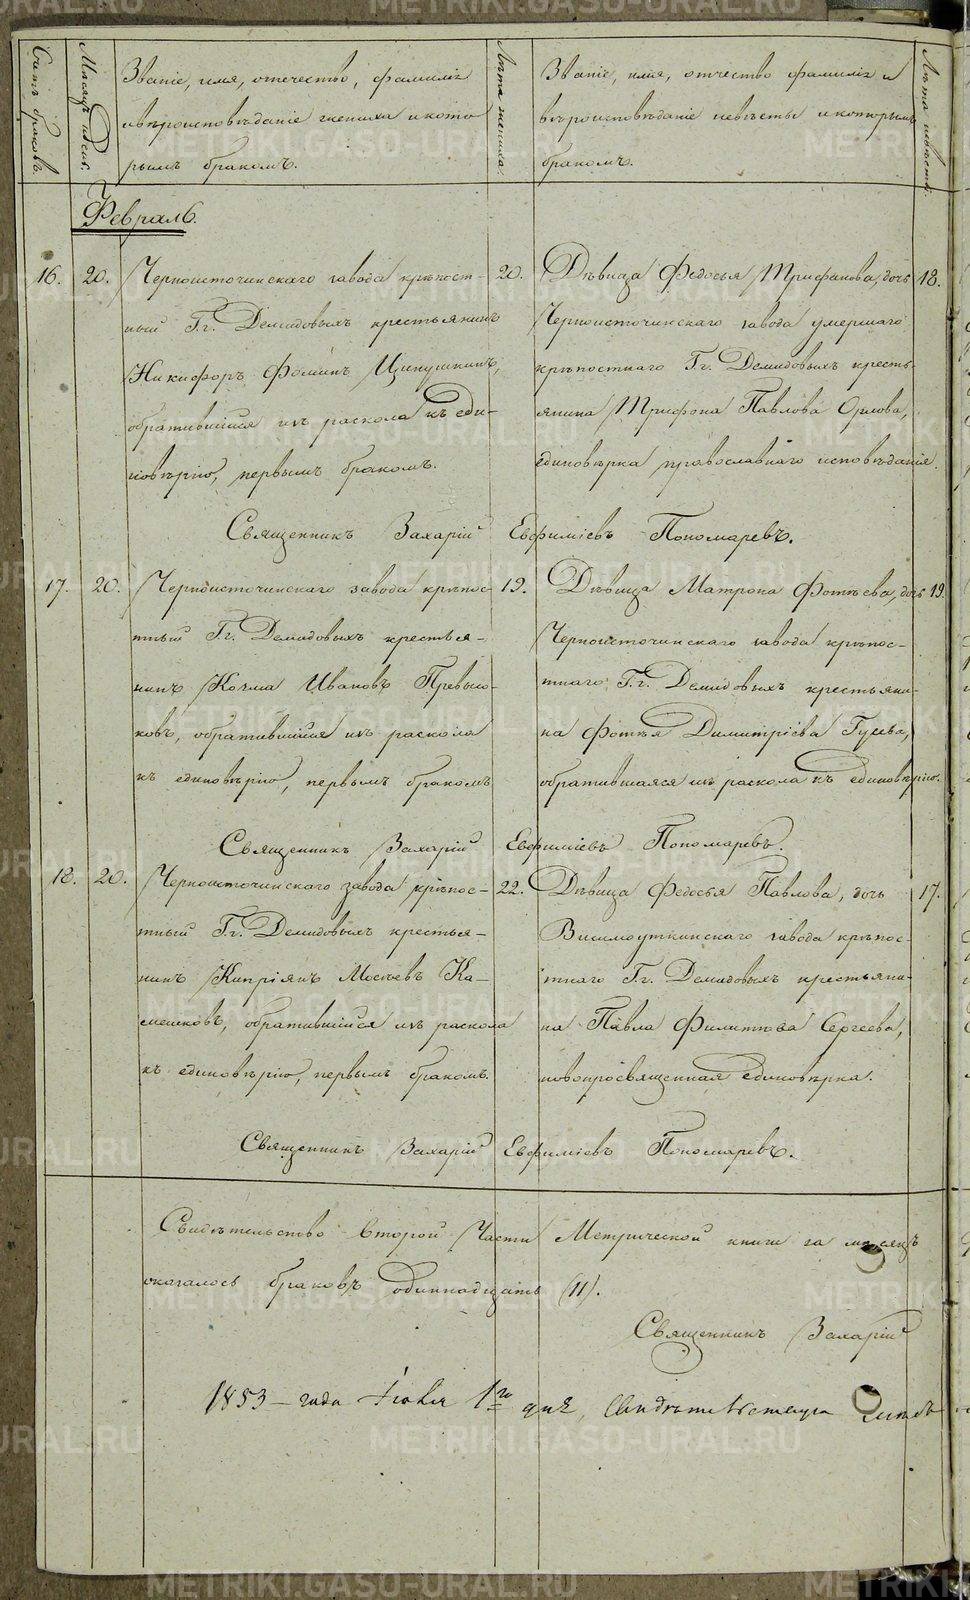 Счетъ браковъ.
Мѣсяцъ и день.
Званіе, имя, отечество, фамилія
и вѣроисповѣданіе жениха и кото
рымъ бракомъ.
Лѣта жениха.
Званіе, имя, отчество фамилія и
вѣроисповѣданіе невѣсты и которымъ
бракомъ.
Лѣта невѣсты.
Февраль.
16.
20.
Черноисточинскаго завода крѣпост-
ный Г.г. Демидовыхъ крестьянинъ
Никифоръ Фоминъ
обратившійся изъ раскола къ еди-
новѣрію, первымъ бракомъ.
20.
Дѣвица Федосья Трифанова, дочь
Черноисточинскаго завода умершаго
крѣпостнаго Гг. Демидовыхъ кресть-
янина Трифона Павлова Орлова,
единовѣрка православнаго исповѣданія.
18.
Священникъ Захарій Евфиміевъ Пономаревъ.
17.
20.
Черноисточинскаго завода крѣпос-
тный Гг. Демидовыхъ крестья-
нинъ Козма Ивановъ
ковъ, обратившійся изъ раскола
къ единовѣрію, первымъ бракомъ
19.
Дѣвица Матрона Фотѣева, дочь
Черноисточинскаго завода крѣпос-
тнаго Г.г. Демидовыхъ крестьяни-
на Фотѣя Димитріева Гусева,
обратившаяся изъ раскола къ единовѣрію.
19.
Священникъ Захарій Евфиміевъ Пономаревъ.
18.
20.
Черноисточинскаго завода крѣпос-
тный Г.г. Демидовыхъ крестья-
нинъ Кипріянъ Мосѣевъ Ка-
мешковъ, обратившійся изъ раскола
къ единовѣрію, первымъ бракомъ.
22.
Дѣвица Федосья Павлова, дочь
Висимоуткинскаго завода крѣпос-
тнаго Гг. Демидовыхъ крестьяни-
на Павла Филиппова Сергеева,
новопросвященная единовѣрка.
17.
Священникъ Захарій Евфиміевъ Пономаревъ.
Свидѣтельство Второй Части Метрической книги за мѣсяцъ
оказалось браковъ одиннадцать (11).
Священникъ Захарій
1853 года Іюля 1го дня, Свидѣтельствуя
METRIKI.GASO-URAL.RU